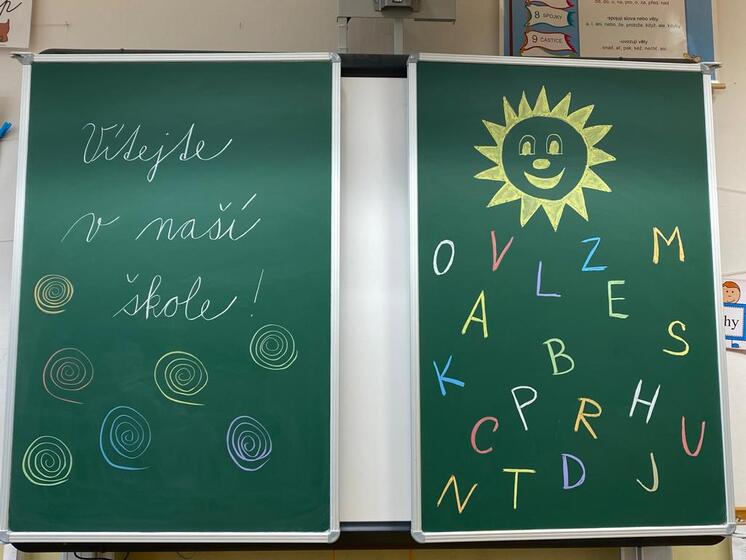 8 SPOJKY
9 ČÁSTICE
-spojují slova nebo věty
a, i, ani, nebo, že, protože, když, ale, kdyby
-uvozují věty
snad, ať, pak, kéž, nechť, asi
Vítejte
v naší
škole!
O V L Z M
A E
B S
K
P R H
C U
N T D J
hy